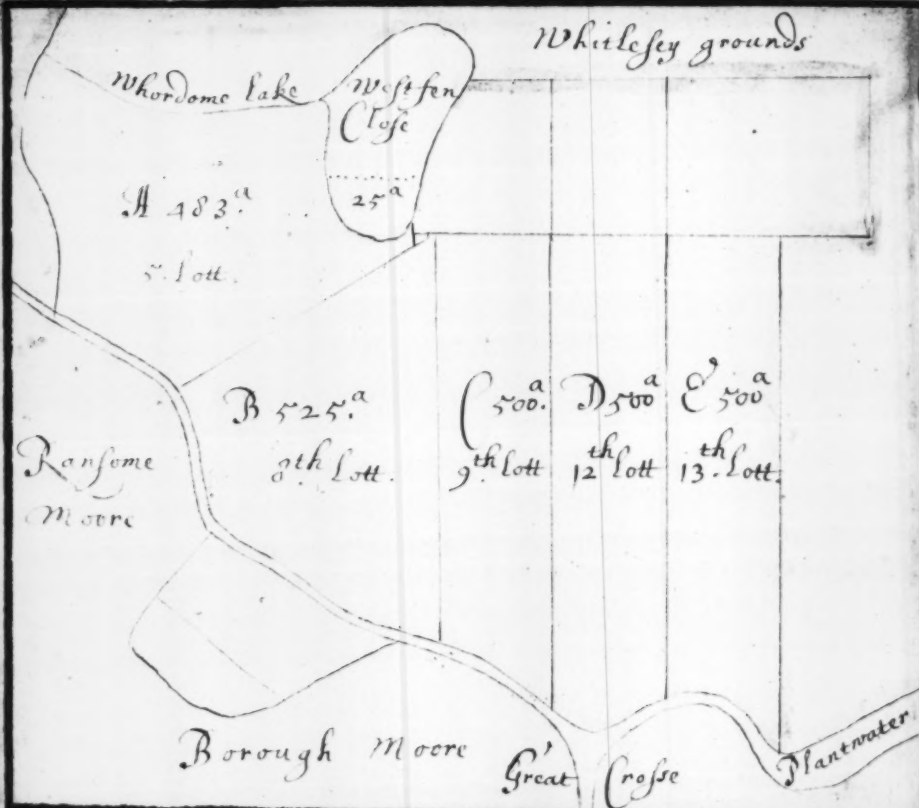 Whitlesey grounds
Whordome lake
Westfen
Close
25.a
A 483.a
5. Lott.
B 525.a
8th Lott.
C 500.a
9th. Lott
D 500a
12th Lott
E 500a
13th. Lott.
Ransome
Moore
Borough Moore
Great Crosse
Plantwater